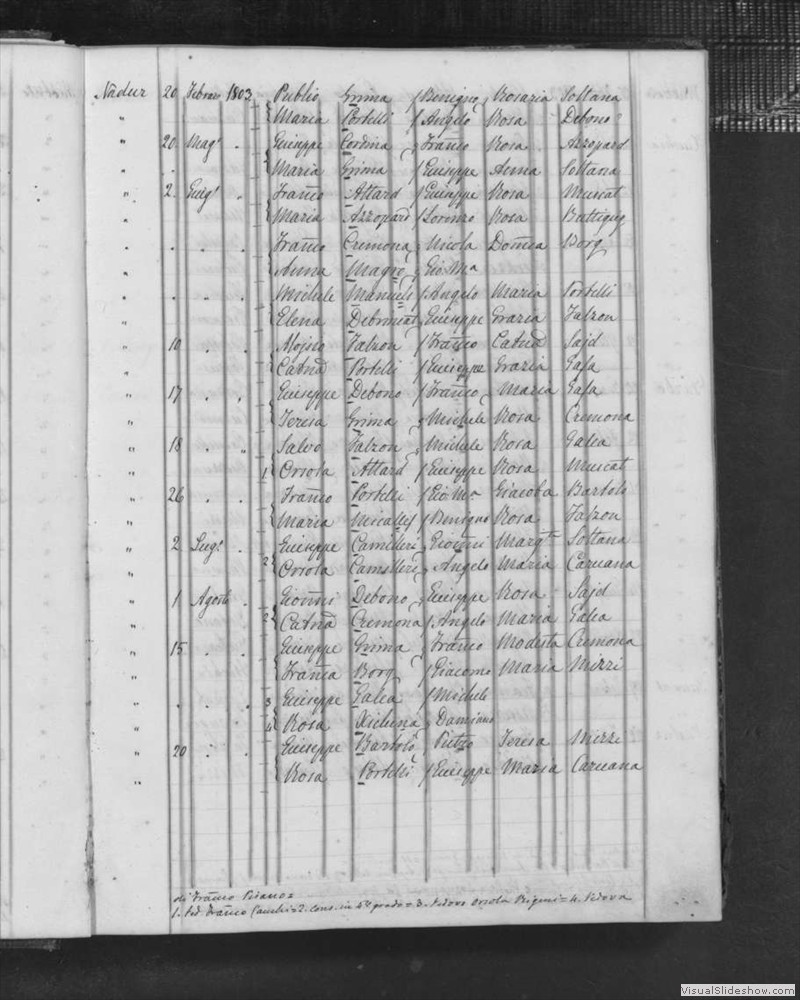 Nadur 20 Febraro 1803 Publio Grima / Benigno Rosaria Soltana
" Maria Portelli / Angelo Rosa Debono
" 20 Magº . Giuseppe Cordina Franco Rosa . Azzopard
" . Maria Grima / Giuseppe Anna Soltana
" 2 Giugº . Franco Attard / Giuseppe Rosa Muscat
" Maria Azzopard / Lorenzo Rosa Buttigieg
" . . . Franco Cremona Nicola Domca Borg
" Anna Magro Gio Ma
" . . . Michele Manueli / Angelo Maria Portelli
" Elena Giuseppe Grazia Falzon
" 10 . . Aloisio Falzon / Franco Catna Sajd
" Catna Portelli / Giuseppe Grazia Gafa
" 17 . . Giuseppe Debono / Franco Maria Gafa
" Teresa Grima Michele Rosa Cremona
" 18 . " Salvo Falzon Michele Rosa Galea
" 1 Orsola Attard / Giuseppe Rosa Muscat
" 26 . . Franco Portelli / Gio Ma Giacoba Bartolo
" Maria Micallef / Benigno Rosa Falzon
" 2 Lugº . Giuseppe Camilleri Gionni Margta Soltana
" 2 Orsola Camilleri Angelo Maria Caruana
" 1 Agosto . Gionni Debono Giuseppe Rosa Sajd
" 2 Catna Cremona / Angelo Maria Galea
" 15 . . Giuseppe Grima Franco Modesta Cremona
" Franca Borg / Giacomo Maria Mizzi
" . . . 3 Giuseppe Galea / Michele
" 4 Rosa Xicluna Damiano
" 20 . . Giuseppe Bartolo Teresa Mizzi
" Rosa Portelli / Giuseppe Maria Caruana
di Franco
1. Ved. Franco = 2. Cons. in 4to grado = 3. Vedovo Orsola = 4. Vedova
VisualSlideshow.com